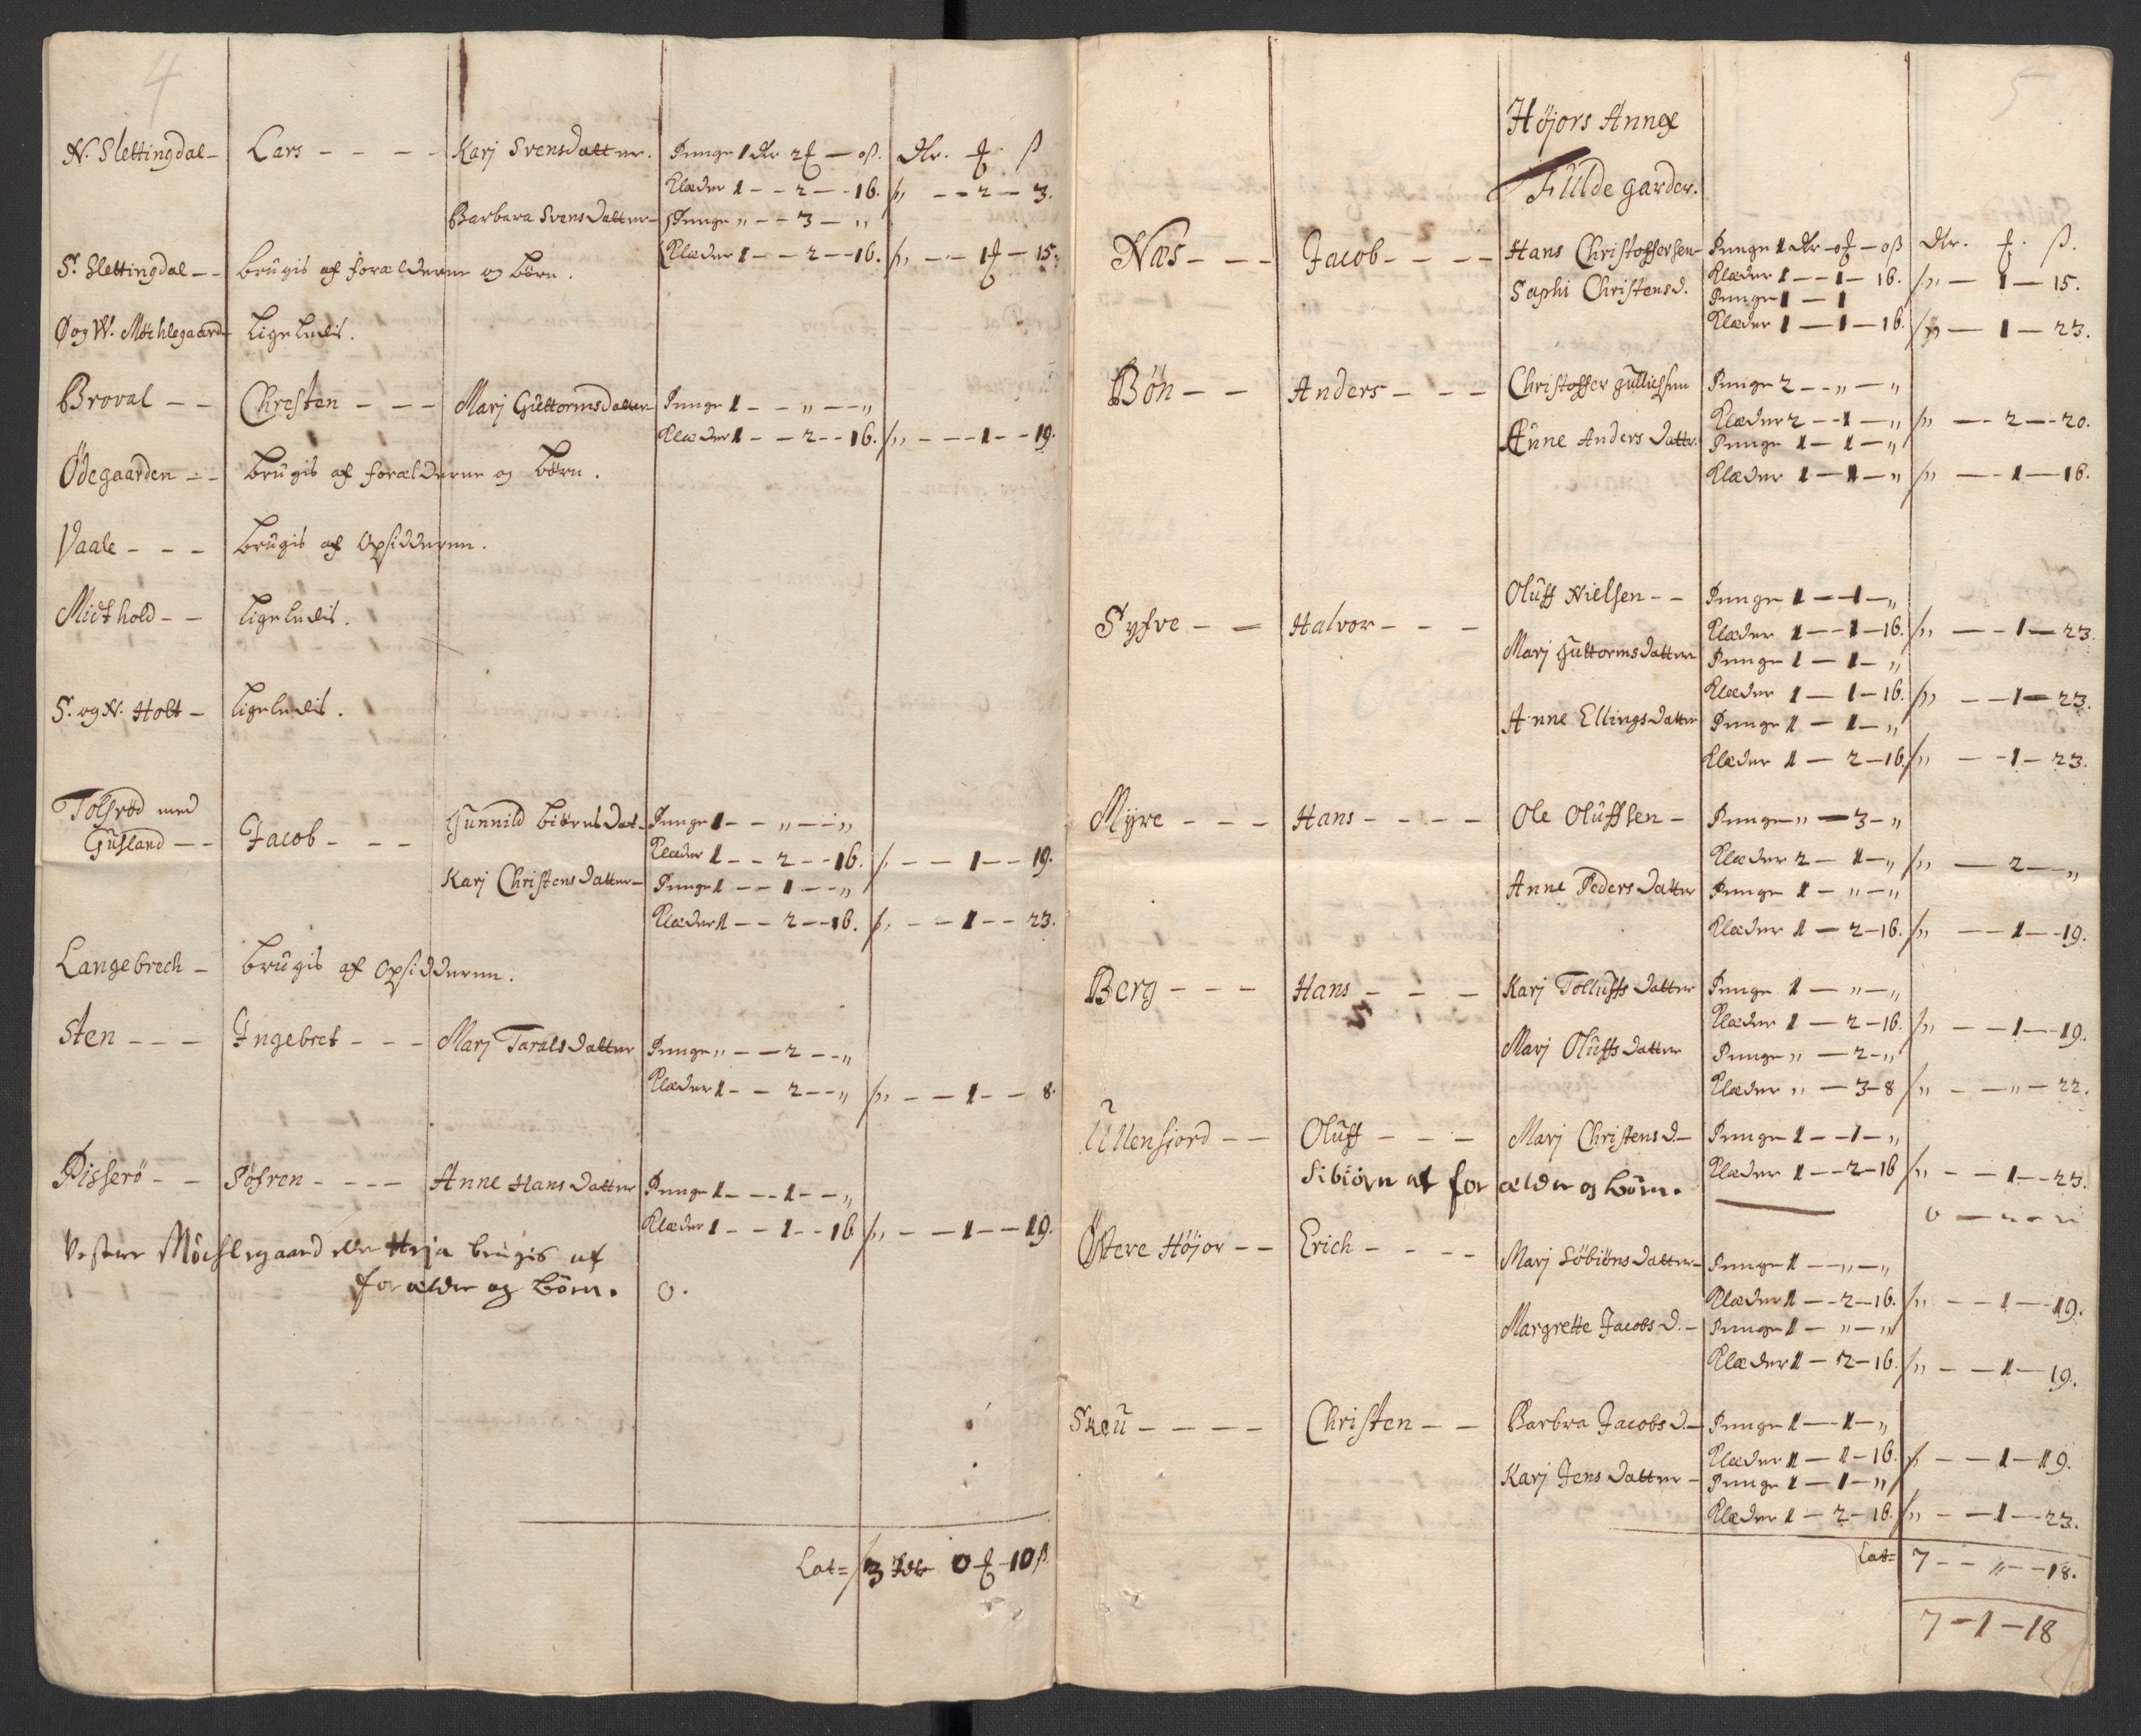 4
N. Slettingdal – Lars – – – – Karj Svensdatter. Penge 1 dlr 2 ƒ – 0 ß. dlr. ƒ ß
Klæder 1 – – 2 – – 16. /,, – – 2 – 3.
Barbara Svensdatter – Penge ,, – – 3 – ,,
Klæder 1 – – 2 – – 16. /,, – – 1 ƒ – 15.
S. Slettingdal – – brugis af forælderne og börn.
Ø og W. Møchlegaard – ligeledis.
Broval – – Chresten – – – Marj Guttormsdatter – Penge 1 – – ,, – – ,,
Klæder 1 – – 2 – – 16. /,, – – – 1 – – 19.
Ødegaarden – – brugis af forælderne og börn.
Vaale – – – brugis af Opsidderne.
Midthold – – ligeledis.
S. og N. Holt – ligeledis.
Tolfsrød med
Gusland – – Jacob – – – Gunnild biörnsdat. Penge 1 – – ,, – – ,,
Klæder 1 – – 2 – – 16. /,, – – 1 – – 19.
Karj Christensdatter – Penge 1 – – 1 – – ,,
Klæder 1 – – 2 – – 16. /,, – – 1 – – 23.
Langebrech – brugis af Opsidderne.
Sten – – – Ingebret – – – Marj Taralsdatter Penge ,, – – 2 – – ,,
Klæder 1 – – 2 – – ,, /,, – – 1 – – 8.
Risserö – – Söfren – – – – Anne Hansdatter Penge 1 – – 1 – – ,,
Klæder 1 – – 1 – – 16. /,, – – 1 – – 19.
Vestere Möchlegaard eller Heja brugis af
forælder og börn. 0.
Lat= /3 dlr 0 ƒ 10 ß.
5
Höjors Annex
Fulde garder.
Næs – – – Jacob – – – – Hans Christoffersen – Penge 1 dlr – 0 ƒ – 0 ß dlr. ƒ. ß.
Klæder 1 – – 1 – 16. /,, – 1 – 15.
Saphi Christensd. Penge 1 – 1
Klæder 1 – 1 – 16. /,, – 1 – 23.
Bön – – Anders – – – Christoffer Gullichsen Penge 2 – – ,, – ,,
Klæder 2 – – 1 – ,, /,, – – 2 – – 20.
Anne Andersdatter Penge 1 – 1 – ,,
Klæder 1 – 1 – ,, /,, – – 1 – 16.
Syfve – – Halvor – – – Oluff Nielsen – – Penge 1 – – 1 – ,,
Klæder 1 – – 1 – 16. /,, – – 1 – 23.
Marj Guttormsdatter Penge 1 – 1 – ,,
Klæder 1 – 1 – 16. /,, – – 1 – 23.
Anne Ellingsdatter Penge 1 – 1 – ,,
Klæder 1 – 2 – 16. /,, – – 1 – 23.
Myre – – – Hans – – – – Ole Oluffsen – Penge ,, – 3 – ,,
Klæder 2 – 1 – ,, /,, – 2 – ,,
Anne Pedersdatter Penge 1 – ,, – ,,
Klæder 1 – 2 – 16. /,, – – 1 – – 19.
Berg – – – Hans – – – Karj Tolluffsdatter Penge 1 – ,, – ,,
Klæder 1 – 2 – 16. /,, – – 1 – – 19.
Marj Oluffsdatter Penge ,, – 2 – ,,
Klæder ,, – 3 – 8 /,, – – ,, – 22.
Ullensjord – – Oluff – – – Marj Christensd – Penge 1 – – 1 – ,,
Klæder 1 – – 2 – 16 /,, – – 1 – – 23.
Sibiörn af forælder og börn. 0 – ,, – ,,
Östere Höjor – – Erich – – – – Marj Söbiönsdatter – Penge 1 – – ,, – ,,
Klæder 1 – – 2 – 16. /,, – – 1 – – 19.
Margrette Jacobsd. – Penge 1 – ,, – ,,
Klæder 1 – 2 – 16. /,, – – 1 – 19.
Skeu – – – – Christen – – Barbra Jacobsd. – Penge 1 – 1 – ,,
Klæder 1 – 1 – 16. /,, – – 1 – 19.
Karj Jensdatter – Penge 1 – 1 – ,,
Klæder 1 – 2 – 16. /,, – – 1 – – 23.
Lat= 7 – – ,, – – 18.
7 – 1 – 18